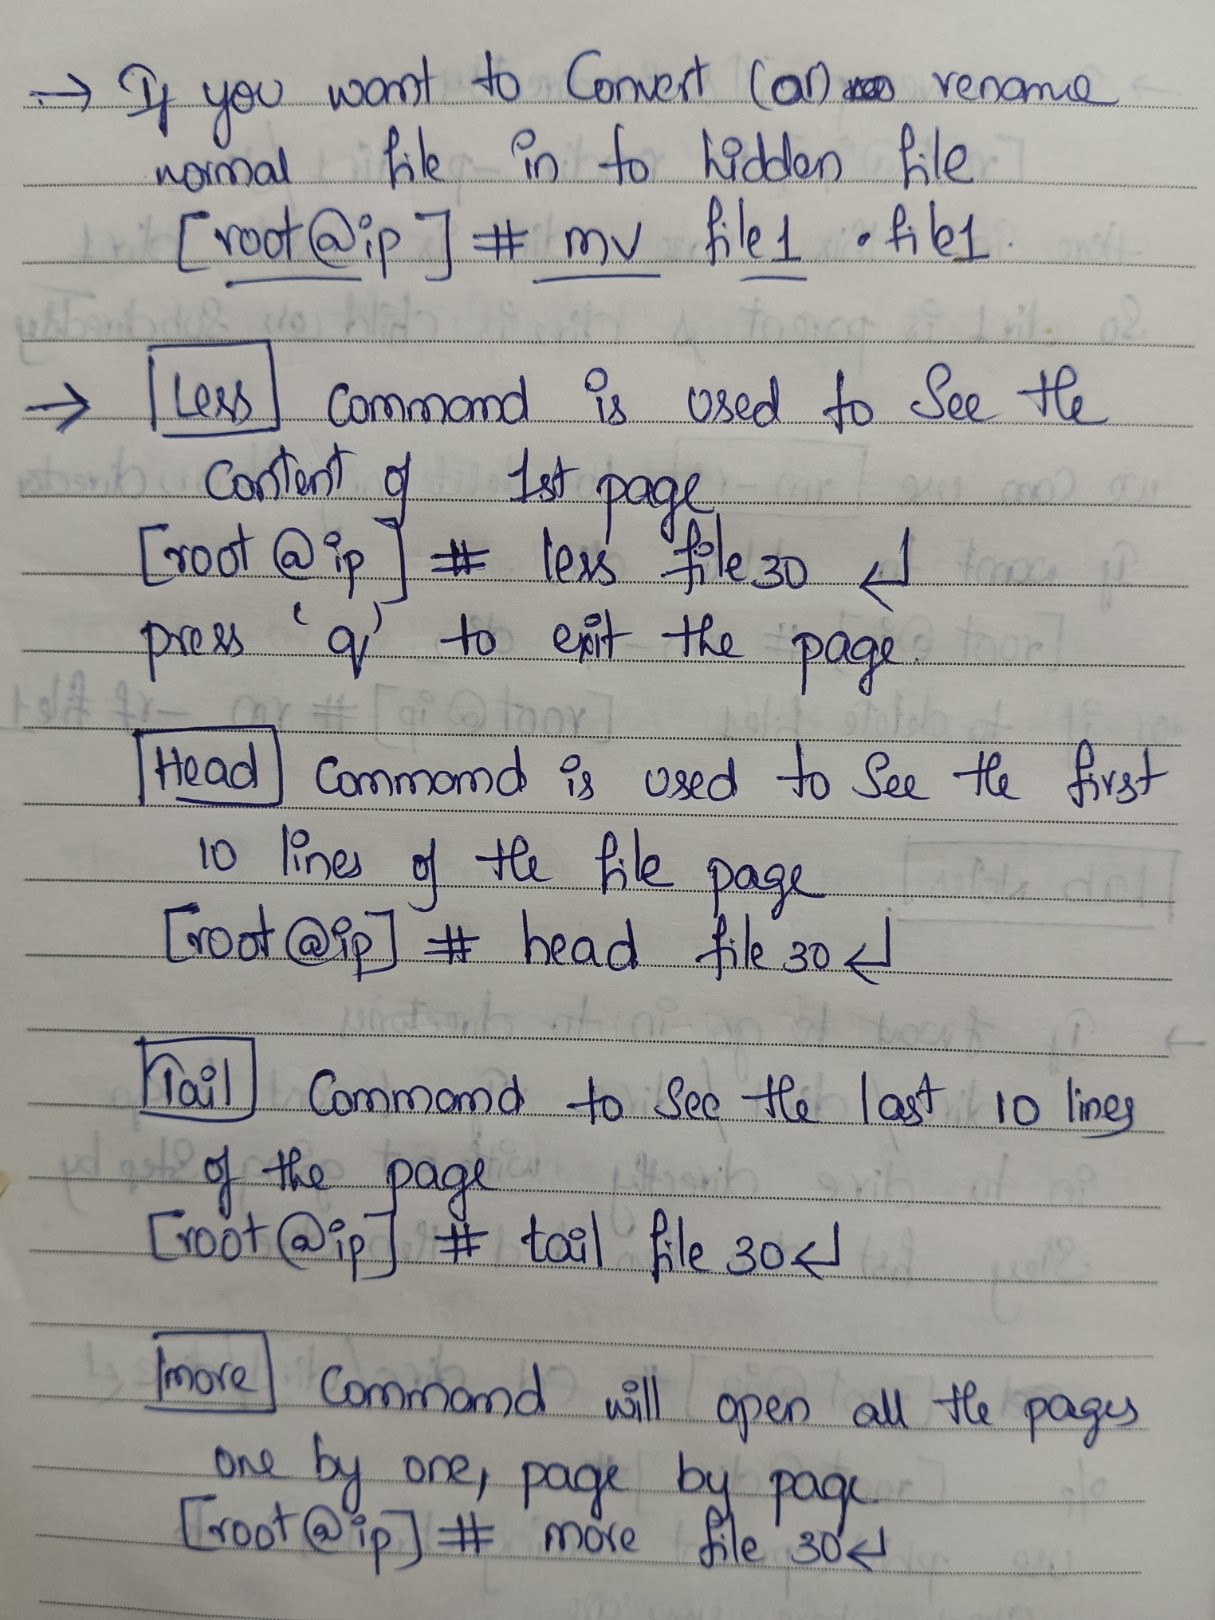 → If you want to Convert (or) rename
normal file in to hidden file
[root@ip] # mv file1 .file1.
→ Less Command is used to See the
Content of 1st page
[root@ip] # less file30 ↵
press 'q' to exit the page.
Head Command is used to See the first
10 lines of the file page
[root@ip] # head file30↵
Tail Command to See the last 10 lines
of the page
[root@ip] # tail file 30↵
more Command will open all the pages
one by one, page by page
[root@ip] # more file 30↵